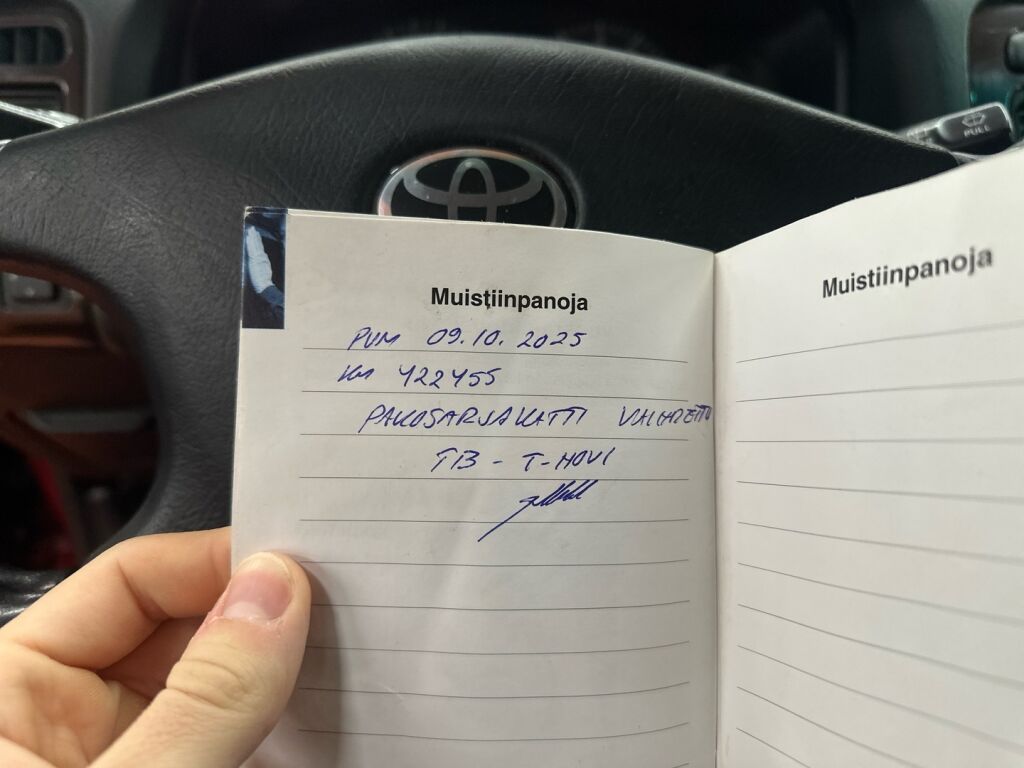 PULL
Muistiinpanoja
PVM 09.10.2025
KM 422455
PAKOSARJAKATTI VAIHDETTU
TB-T-HOVI
Muistiinpanoja